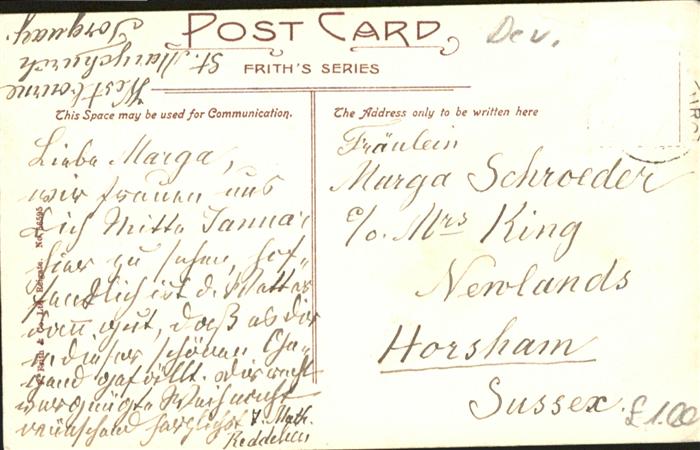 POST CARD
FRITH'S SERIES
Dev.
Westbourne
St. Marychurch
Torquay.
This Space may be used for Communication.
The Address only to be written here
Liebe Marga,
wir freuen uns
Dich Mitte Januar
hier zu sehen, hof-
fentlich ist d. Wetter
dann gut, daß es dir
in dieser schönen Ge-
gend gefällt. Dir recht
vergnügte Weihnacht
wünschend herzlichst
Reddelien
Fräulein
Marga Schroeder
c/o. Mrs King
Newlands
Horsham
Sussex.
£1.00
F. Frith & Co. Ltd., Reigate. No.